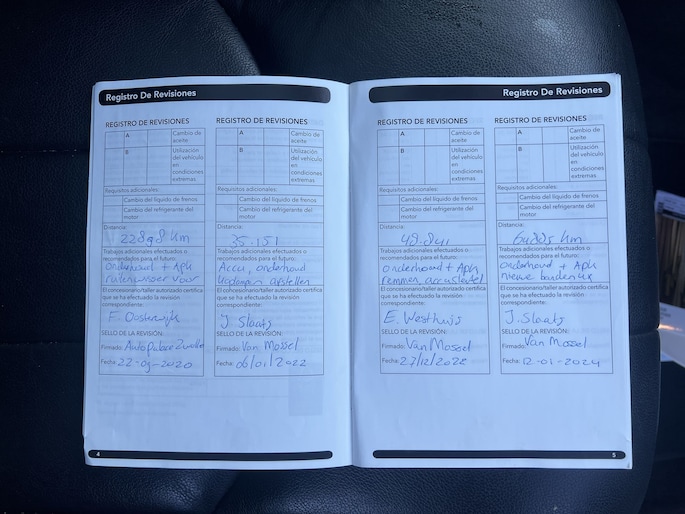 Registro De Revisiones
REGISTRO DE REVISIONES
A
Cambio de
aceite
B
Utilización
del vehículo
en
condiciones
extremas
Requisitos adicionales:
Cambio del líquido de frenos
Cambio del refrigerante del
motor
Distancia:
22898 km
Trabajos adicionales efectuados o
recomendados para el futuro:
onderhoud + Apk
ruitenwisser voor
El concesionario/taller autorizado certifica
que se ha efectuado la revisión
correspondiente:
E. Oosterwijk
SELLO DE LA REVISIÓN:
Firmado: AutoPalace Zwolle
Fecha: 22-09-2020
REGISTRO DE REVISIONES
A
Cambio de
aceite
B
Utilización
del vehículo
en
condiciones
extremas
Requisitos adicionales:
Cambio del líquido de frenos
Cambio del refrigerante del
motor
Distancia:
35.151
Trabajos adicionales efectuados o
recomendados para el futuro:
Accu, onderhoud
afstellen
El concesionario/taller autorizado certifica
que se ha efectuado la revisión
correspondiente:
J. Slaats
SELLO DE LA REVISIÓN:
Firmado: Van Mossel
Fecha: 06/01/2022
4
Registro De Revisiones
REGISTRO DE REVISIONES
A
Cambio de
aceite
B
Utilización
del vehículo
en
condiciones
extremas
Requisitos adicionales:
Cambio del líquido de frenos
Cambio del refrigerante del
motor
Distancia:
48.841
Trabajos adicionales efectuados o
recomendados para el futuro:
onderhoud + Apk
remmen, accu sleutel
El concesionario/taller autorizado certifica
que se ha efectuado la revisión
correspondiente:
E. Westhuijs
SELLO DE LA REVISIÓN:
Firmado: Van Mossel
Fecha: 27/12/2022
REGISTRO DE REVISIONES
A
Cambio de
aceite
B
Utilización
del vehículo
en
condiciones
extremas
Requisitos adicionales:
Cambio del líquido de frenos
Cambio del refrigerante del
motor
Distancia:
km
Trabajos adicionales efectuados o
recomendados para el futuro:
onderhoud + Apk
nieuwe banden
El concesionario/taller autorizado certifica
que se ha efectuado la revisión
correspondiente:
J. Slaats
SELLO DE LA REVISIÓN:
Firmado: Van Mossel
Fecha: 12-01-2024
5